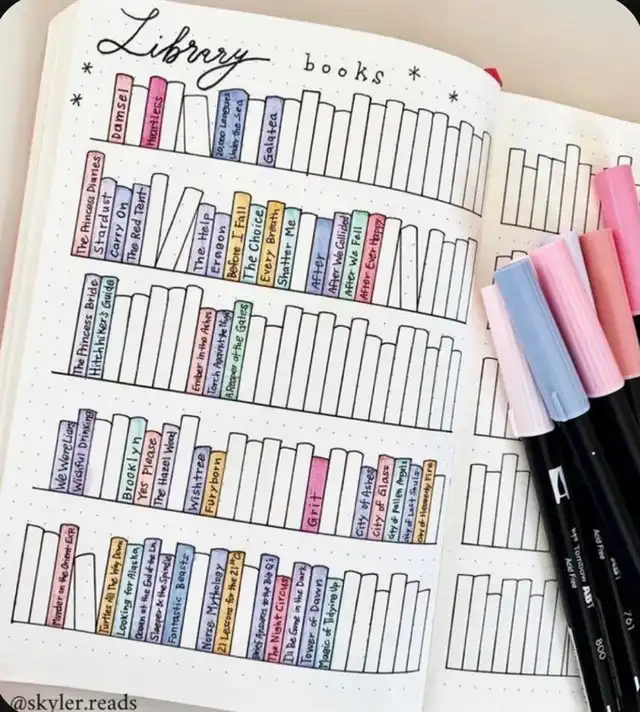 Library books
Damsel
Heartless
20,000 Leagues
Under the Sea
Galatea
The Princess Diaries
Stardust
Carry On
The Red Tent
The Help
Eragon
Before I Fall
The Choice
Every Breath
Shatter Me
After
After We Collided
After We Fell
After Ever Happy
The Princess Bride
Hitchhiker's Guide
Ember in the Ashes
Torch Against the Night
A Reaper at the Gates
We Were Liars
Wishful Drinking
Brooklyn
Yes Please
The Hazel Wood
Wishtree
Furyborn
Grit
City of Ashes
City of Glass
City of Fallen Angels
City of Lost Souls
City of Heavenly Fire
Murder on the Orient Exp.
Turtles All the Way Down
Looking for Alaska
Ocean at the End of the Ln
Sleeper & the Spindle
Fantastic Beasts
Norse Mythology
21 Lessons for the 21st C
Brief Answers to the Big Q's
The Night Circus
I'll Be Gone in the Dark
Tower of Dawn
Magic of Tidying Up
Tombow ABT
Acid Free
800
Acid Free
761
@skyler.reads